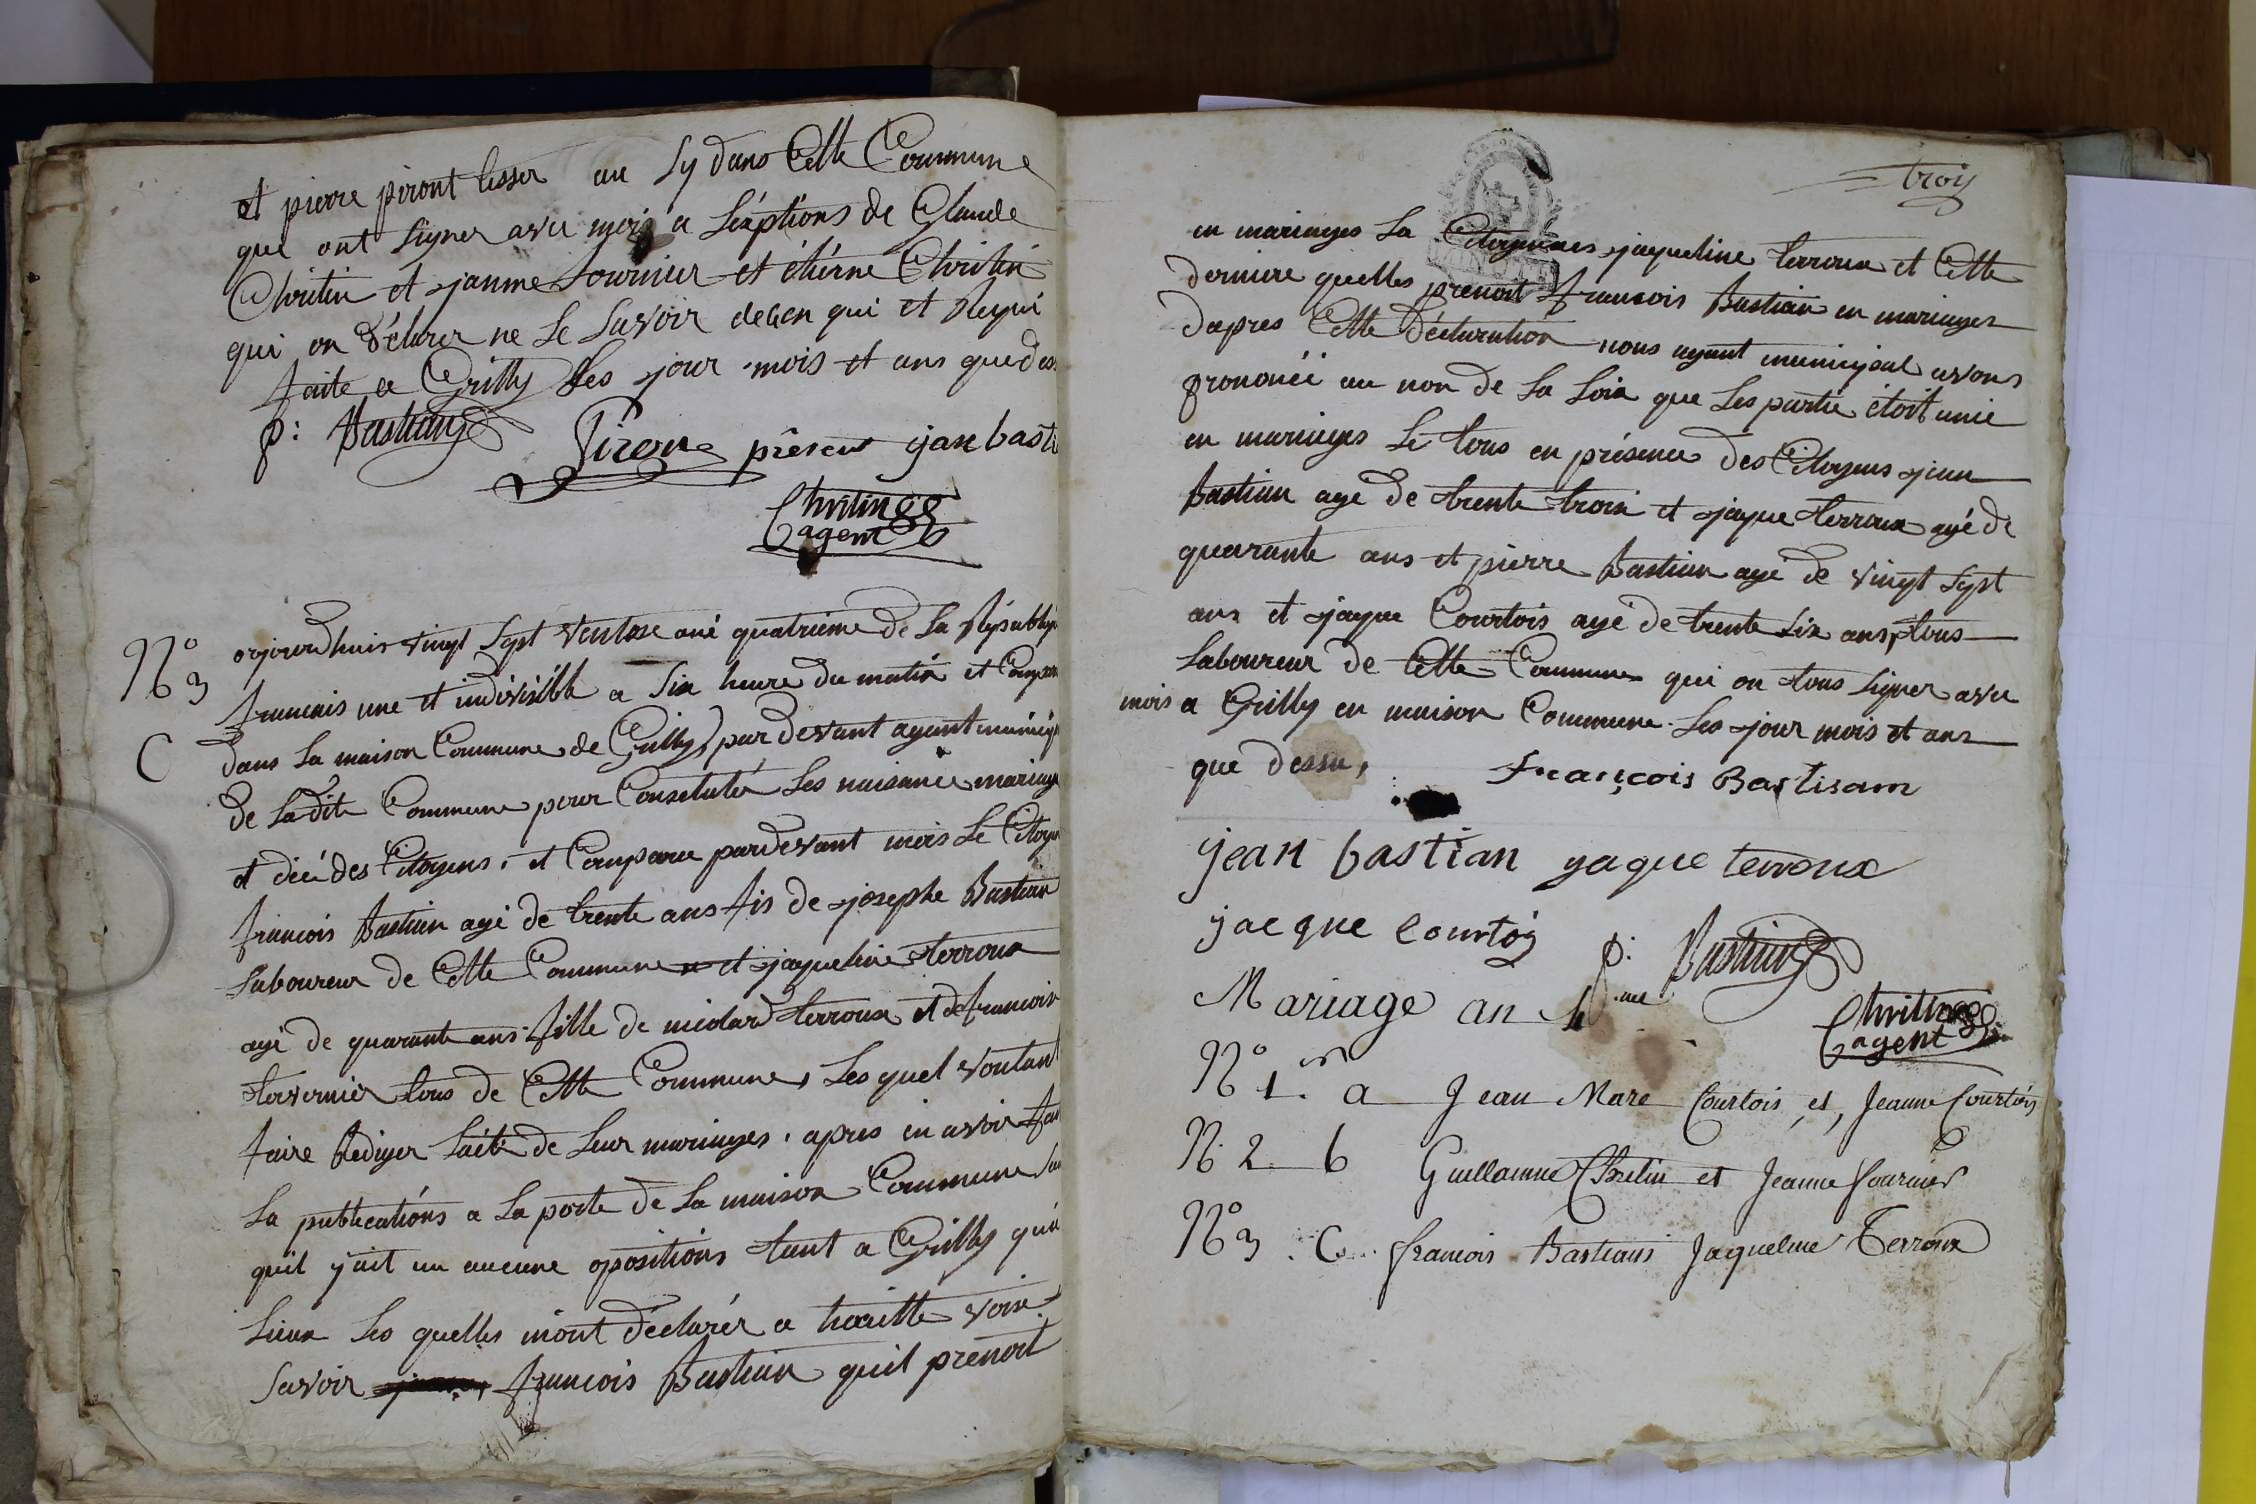 et pierre piront tisser au Sy dans Cette Commune
que ont Signer avec mois a Léxptions de Glaude
Chritin et janne fournier et étiénne Chritin
qui on déclarer ne Le Savoir de ce qui et Requi
faite a Grilly Les jour mois et ans que des
p: Bastian Piron présent jan basti
Chritin
agent
N° 3 orjourdhuis vingt Sept ventose ané quatrieme de La Républiq
francais une et indivisible a Six heure du matin et Compar
C dans La maison Commune de Grilly par devant agent municip
de Ladite Commune pour Constuté Les naisance mariage
et décé des Citoyens, et Comparu pardevant mois Le Citoye
francois Bastian agé de trente ans fis de josephe Bastian
Laboureur de Cette Commune et jaqueline terroux
agé de quarante ans fille de nicolard terroux et de francois
tavernier tous de Cette Commune, Les quel voulant
faire Rédiger Lacte de Leur mariages, apres en avoir fai
La publications a La porte de La maison Commune San
quil jait eu aucune opositions tant a Grilly qu'en
Lieux Les quelles mont déclarér a haitte voix
Savoir francois Bastian quil prenoit
troy
en mariages La Citoyennes jaqueline terroux et Cette
derniere quelles prenoit francois Bastian en mariages
dapres Cette déclaration nous agant municipal avons
prononcé au non de La Loix que Les partie étoit unie
en mariages Le tous en présence des Citoyens jean
Bastian agé de trente troix et jaque terroux agé de
quarante ans et pierre Bastian agé de vingt Sept
ans et jaque Courtois agé de trente Six ans, tous
Laboureur de Cette Commune qui on tous Signer avec
mois a Grilly en maison Commune Les jour mois et ans
que dessu,
françois Bastisam
jean bastian yaque terroux
jacque Courtois
p: Bastian
Mariage an 4me
Chritin
agent
N° 1er a Jean Marc Courtois et, Jeanne Courtois
N. 2. b Guillaume Chritin et Jeanne fournier
N° 3. C. francois Bastians Jaqueline Terroux